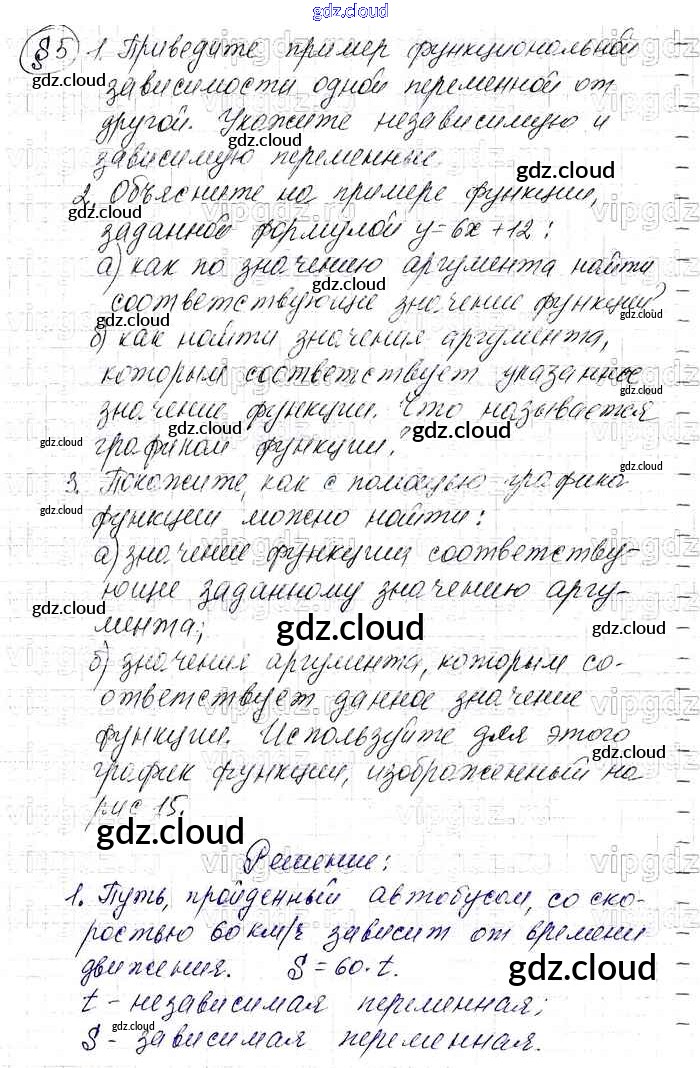 gdz.cloud
§5 1. Приведите пример функциональной
зависимости одной переменной от
другой. Укажите независимую и
зависимую переменные.
2. Объясните на примере функции,
заданной формулой y=6x+12:
а) как по значению аргумента найти
соответствующие значение функции?
б) как найти значения аргумента,
которым соответствует указанное
значение функции. Что называется
графиком функции?
3. Покажите, как с помощью графика
функции можно найти:
а) значение функции соответству-
ющие заданному значению аргу-
мента;
б) значения аргумента, которым со-
ответствует данное значение
функции. Используйте для этого
график функции, изображенный на
рис 15.
Решение:
1. Путь, пройденный автобусом, со ско-
ростью 60 км/ч зависит от времени
движения. S=60·t.
t - независимая переменная;
S - зависимая переменная.